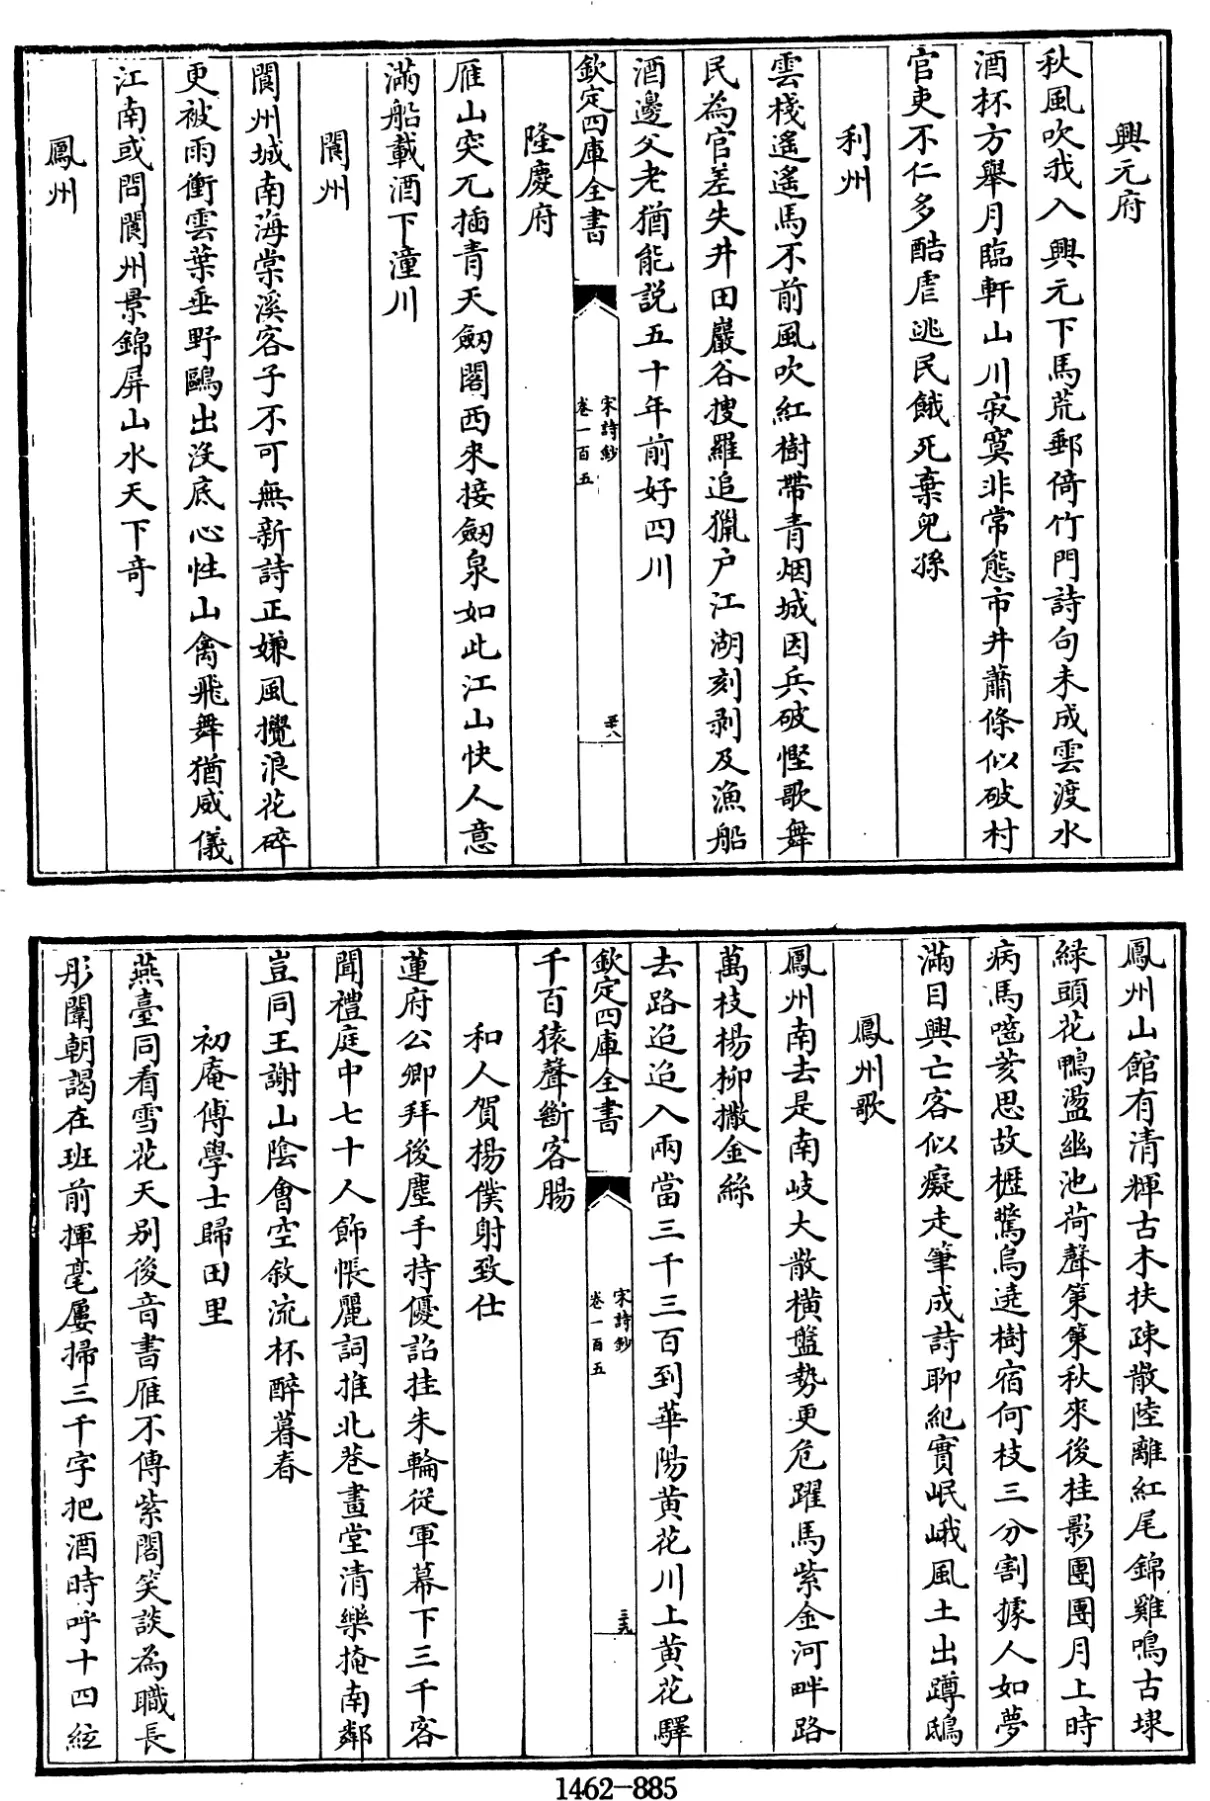 興元府
秋風吹我入興元下馬荒郵倚竹門詩句未成雲渡水
酒杯方舉月臨軒山川寂寞非常態市井蕭條似破村
官吏不仁多酷虐逃民餓死棄兒孫
利州
雲棧遙遙馬不前風吹紅樹帶青烟城因兵破慳歌舞
民為官差失井田巖谷搜羅追獵户江湖刻剥及漁船
酒邊父老猶能説五十年前好四川
欽定四庫全書
宋詩鈔
卷一百五
三十八
隆慶府
雁山突兀插青天劒閣西來接劒泉如此江山快人意
滿船載酒下潼川
閬州
閬州城南海棠溪客子不可無新詩正嫌風攪浪花碎
更被雨衝雲葉垂野鷗出沒底心性山禽飛舞猶威儀
江南或問閬州景錦屏山水天下奇
鳳州
鳳州山館有清輝古木扶疎散陸離紅尾錦雞鳴古埭
緑頭花鴨盪幽池荷聲策策秋來後桂影團團月上時
病馬嚙芰思故櫪驚烏遶樹宿何枝三分割據人如夢
滿目興亡客似癡走筆成詩聊紀實岷峨風土出蹲鴟
鳳州歌
鳳州南去是南岐大散橫盤勢更危躍馬紫金河畔路
萬枝楊柳撒金絲
去路迢迢入兩當三千三百到華陽黄花川上黄花驛
欽定四庫全書
宋詩鈔
卷一百五
三十九
千百猿聲斷客腸
和人賀楊僕射致仕
蓮府公卿拜後塵手持優詔挂朱輪從軍幕下三千客
聞禮庭中七十人飾帳麗詞推北巷畫堂清樂掩南鄰
豈同王謝山陰會空敘流杯醉暮春
初庵傅學士歸田里
燕臺同看雪花天别後音書雁不傳紫閣笑談為職長
彤闈朝謁在班前揮毫屢掃三千字把酒時呼十四絃
1462-885